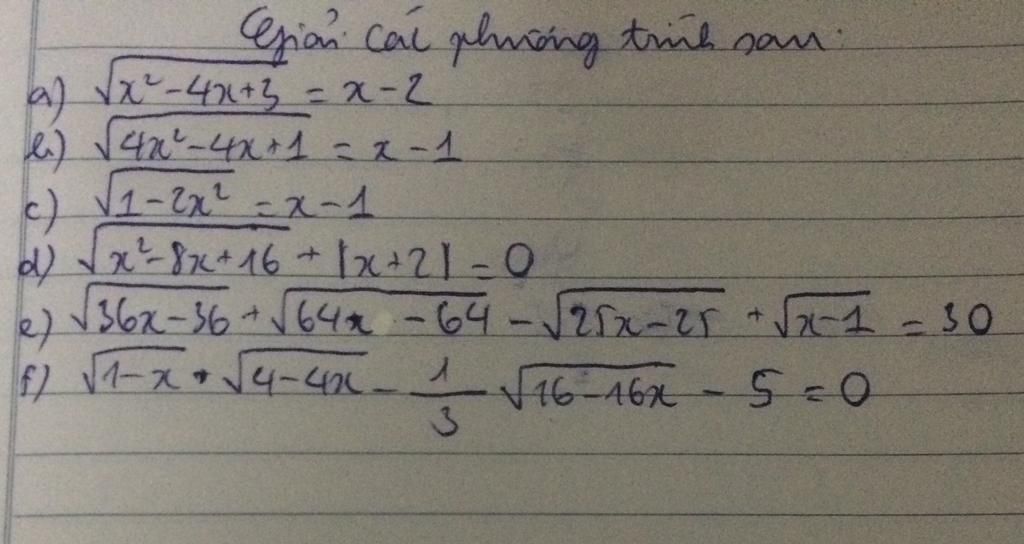 Giải các phương trình sau:
a) √(x²-4x+3) = x-2
b) √(4x²-4x+1) = x-1
c) √(1-2x²) = x-1
d) √(x²-8x+16) + |x+2| = 0
e) √(36x-36) + √(64x-64) - √(25x-25) + √(x-1) = 30
f) √(1-x) + √(4-4x) - 1/3 √(16-16x) - 5 = 0